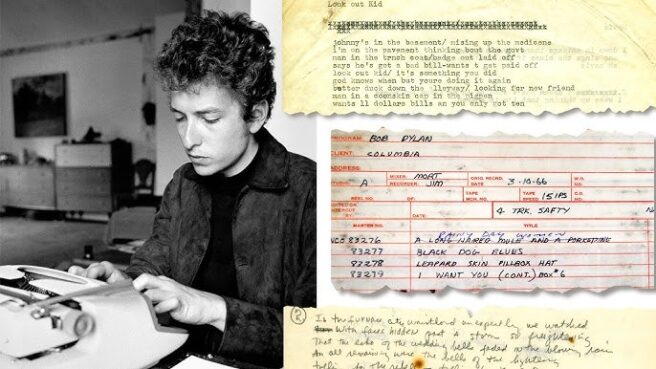 Look out Kid
johnny's in the basement/ mixing up the medisene
i'm on the pavement thinking bout the govt
man in the trnch soat/badge out laid off
says he's got a bad bill-wants t get paid off
look out kid/ it's something you did
god knows when but yore doing it again
better duck down the llerway/ looking for new friend
man in a coonskin cap in the pigpen
wants ll dollars bills an you only got ten
PROGRAM BOB DYLAN
CLIENT: COLUMBIA
ADDRESS:
STUDIO: A MIXER MORT RECORDER JIM ORIG. RECRD. DATE 3-10-66 W.O. NO.
REEL NO. OF: TAPE MCH. NO. TAPE SPEED 15 IPS C.O. NO.
BY DATE: 4 TRK. SAFTY
MASTER NO. TITLE
RAINY DAY WOMEN
NCO 83276 A LONG HAIRED MULE AND A PORKEPINE
83277 BLACK DOG BLUES
83278 LEAPARD SKIN PILLBOX HAT
83279 I WANT YOU (CONT.) BOX #6
2
In the furnace city unwatched unexpectly we watched
With faces hidden past a storm so frightening
That the echo of the wedding bells faded in the blowing rain
An all remaining were the bells of the lightning